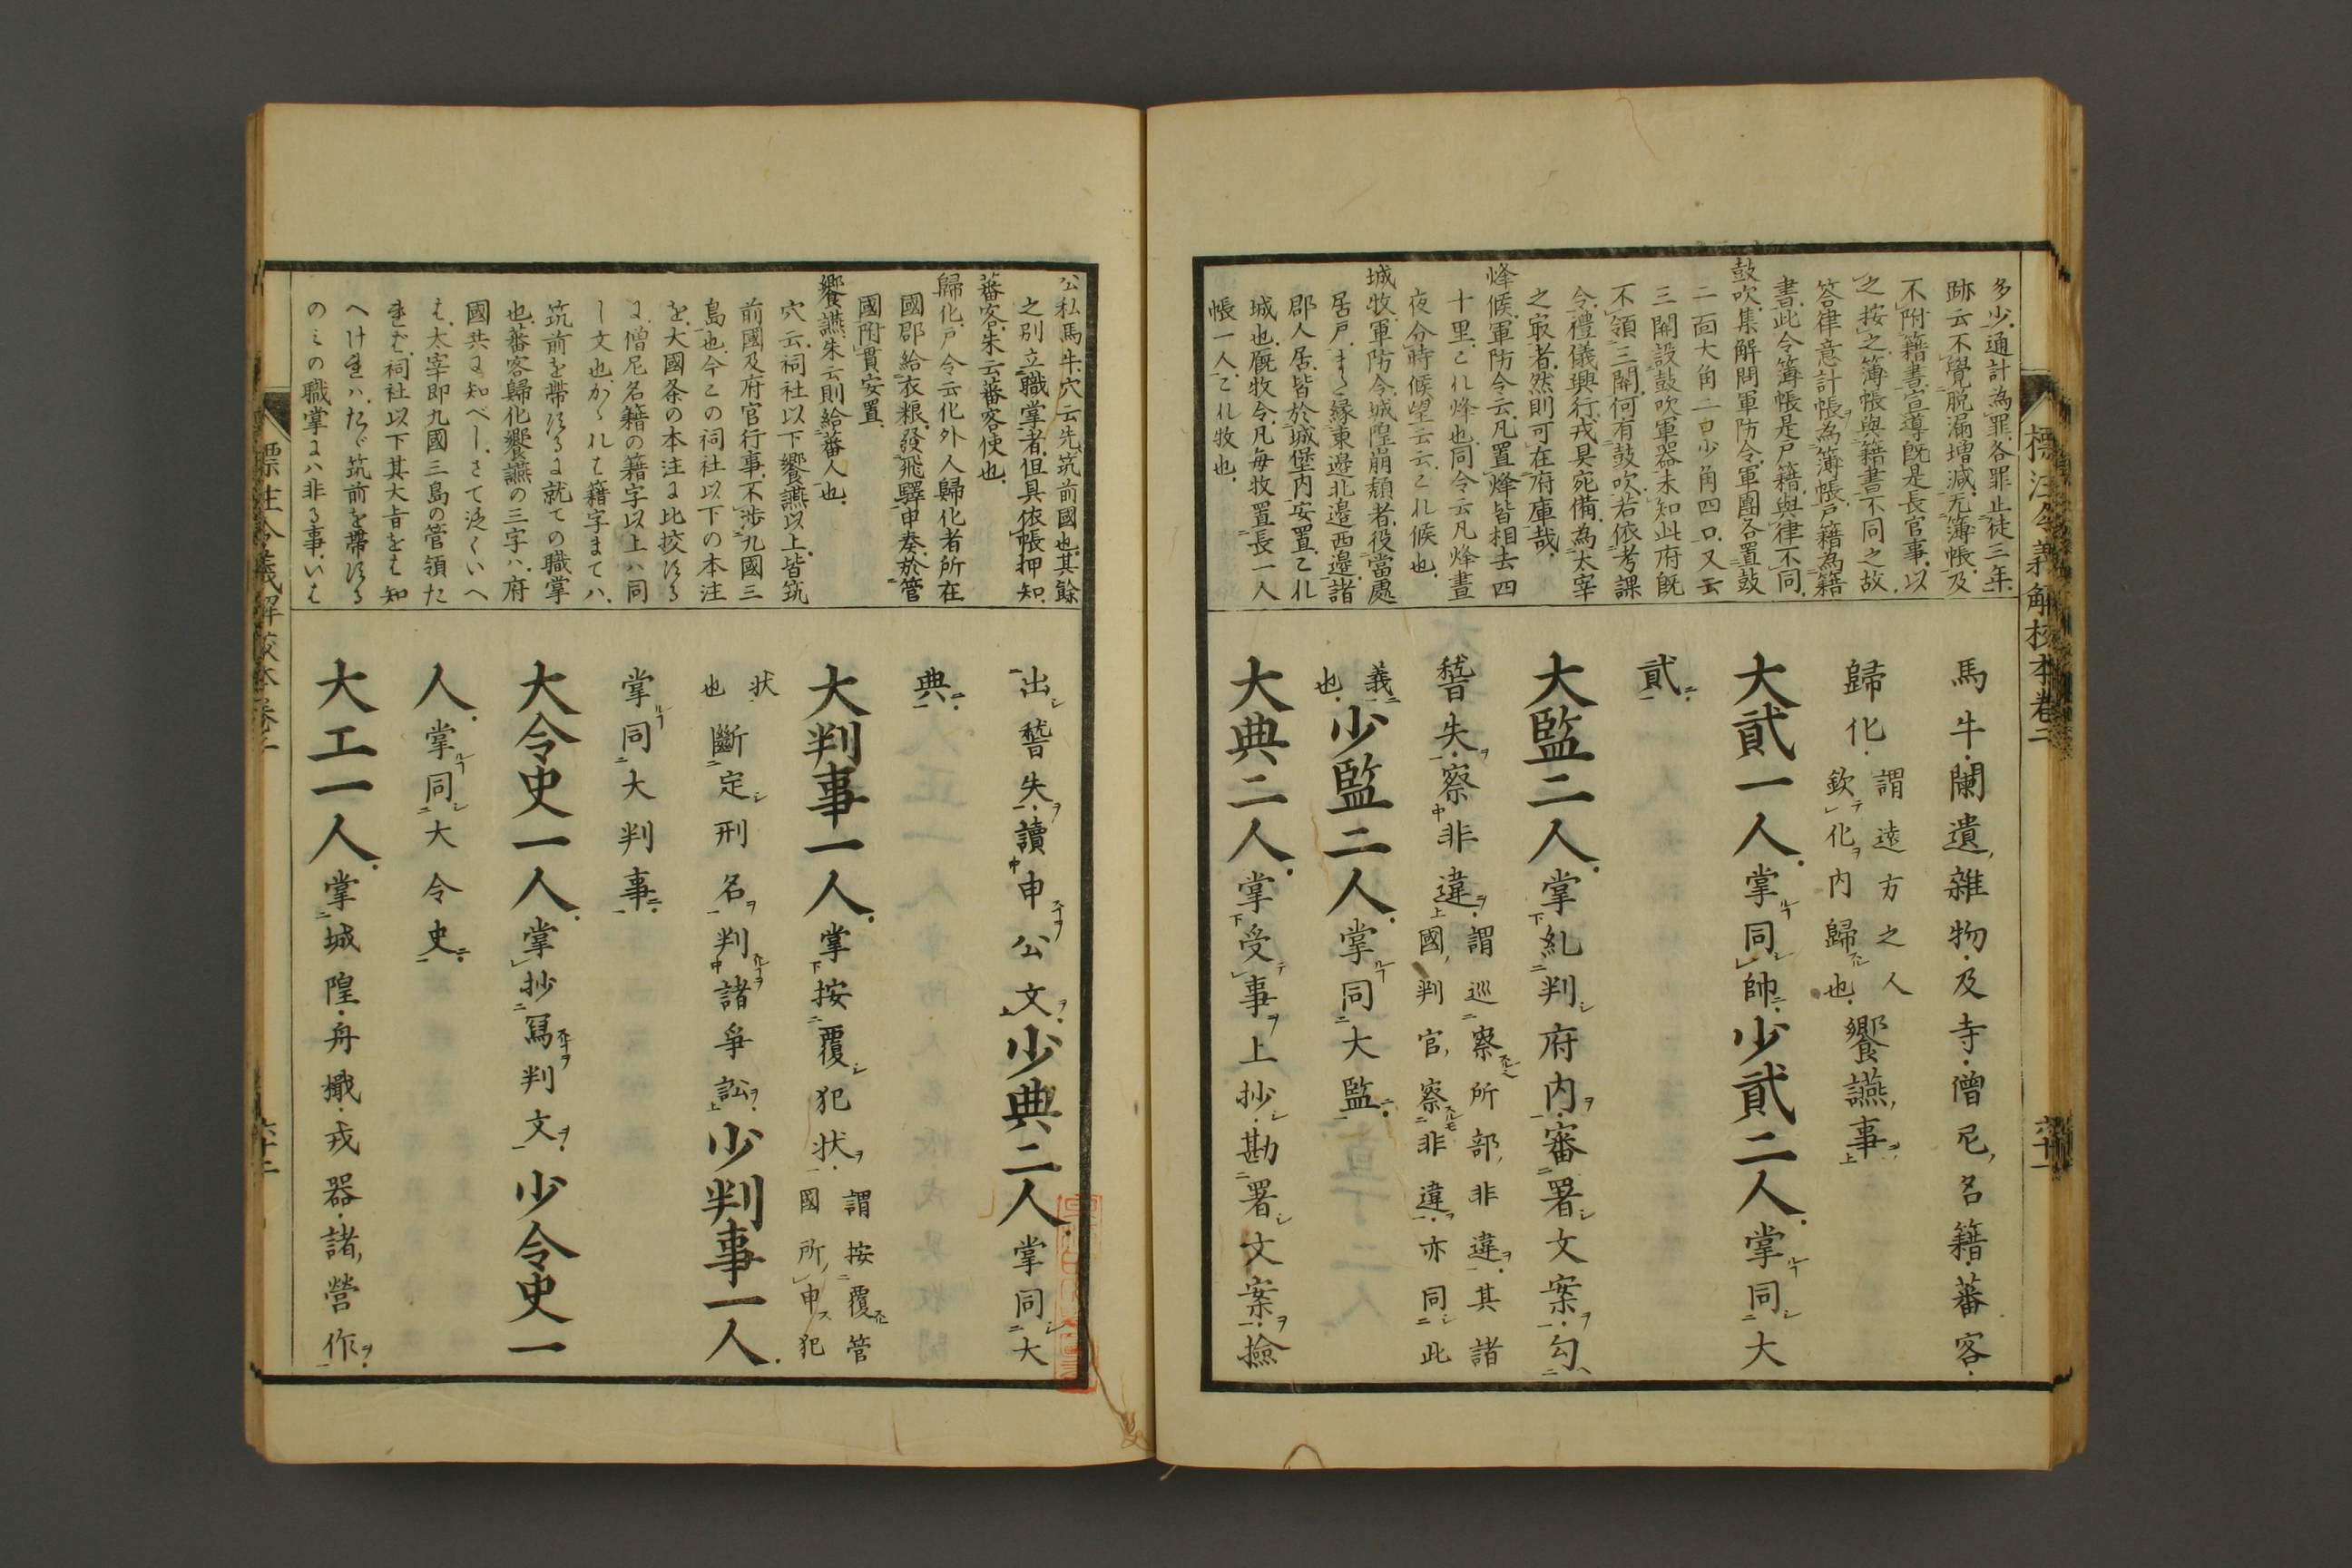 標注令義解校本卷二
六十一
多少通計為罪各罪止徒三年
跡云不覺脫漏增減无簿帳及
不附籍書宣導既是長官事以
之按之簿帳與籍書不同之故
答律意計帳為簿帳戸籍為籍
書此令簿帳是戸籍與律不同
鼓吹集解問軍防令軍團各置鼓
二面大角二口少角四口又云
三關設鼓吹軍器未知此府既
不領三關何有鼓吹若依考課
令禮儀興行戎具宛備為太宰
之㝡者然則可在府庫哉
烽候軍防令云凡置烽皆相去四
十里これ烽也同令云凡烽晝
夜分時候望云云これ候也
城牧軍防令城隍崩頽者役當處
居戸また緣東邉北邉西邉諸
郡人居皆於城堡内安置これ
城也厩牧令凡毎牧置長一人
帳一人これ牧也
馬牛闌遺雜物及寺僧尼名籍蕃客
歸化謂遠方之人欽テ化ヲ内歸スル也饗讌事ヲ
大貳一人掌ルヿ同シ帥ニ少貳二人掌ルヿ同シ大
貳ニ
大監二人掌糺判シ府内ヲ審署シ文案ヲ勾ヘ
稽失ヲ察非違ヲ謂巡察スルヿ所部非違ヲ其諸國判官察スルモ非違ヲ亦同シ此
義ニ也少監二人掌ルヿ同大監ニ
大典二人掌受テ事ヲ上抄シ勘署シ文案ヲ撿
公私馬牛穴云先筑前國也其餘
之別立職掌者但具依帳押知
蕃客朱云蕃客使也
歸化戸令云化外人歸化者所在
國郡給衣粮發飛驛申奏於管
國附貫安置
饗讌朱云則給蕃人也
穴云祠社以下饗讌以上皆筑
前國及府官行事不涉九國三
島也今この祠社以下の本注
を大國条の本注に比挍する
に僧尼名籍の籍字以上ハ同
し文也かゝれは籍字まてハ
筑前を帶するに就ての職掌
也蕃客歸化饗讌の三字ハ府
國共に知べしさて泛くいへ
は太宰即九國三島の管領た
れど祠社以下其大旨をは知
へけれハたゞ筑前を帶する
のミの職掌にハ非る事いは
出シ稽失ヲ讀申スヿヲ公文ヲ少典二人掌同シ大
典ニ
大判事一人掌按覆シ犯状ヲ謂按覆スル管國所申ス犯
状也斷定シ刑名ヲ判スルヿヲ諸爭訟ヲ少判事一人
掌ルヿ同大判事ニ
大令史一人掌抄冩スルヿヲ判文ヲ少令史一
人掌ルヿ同シ大令史ニ
大工一人掌城隍舟檝戎器諸營作ヲ
標注令義解校本卷二
六十二